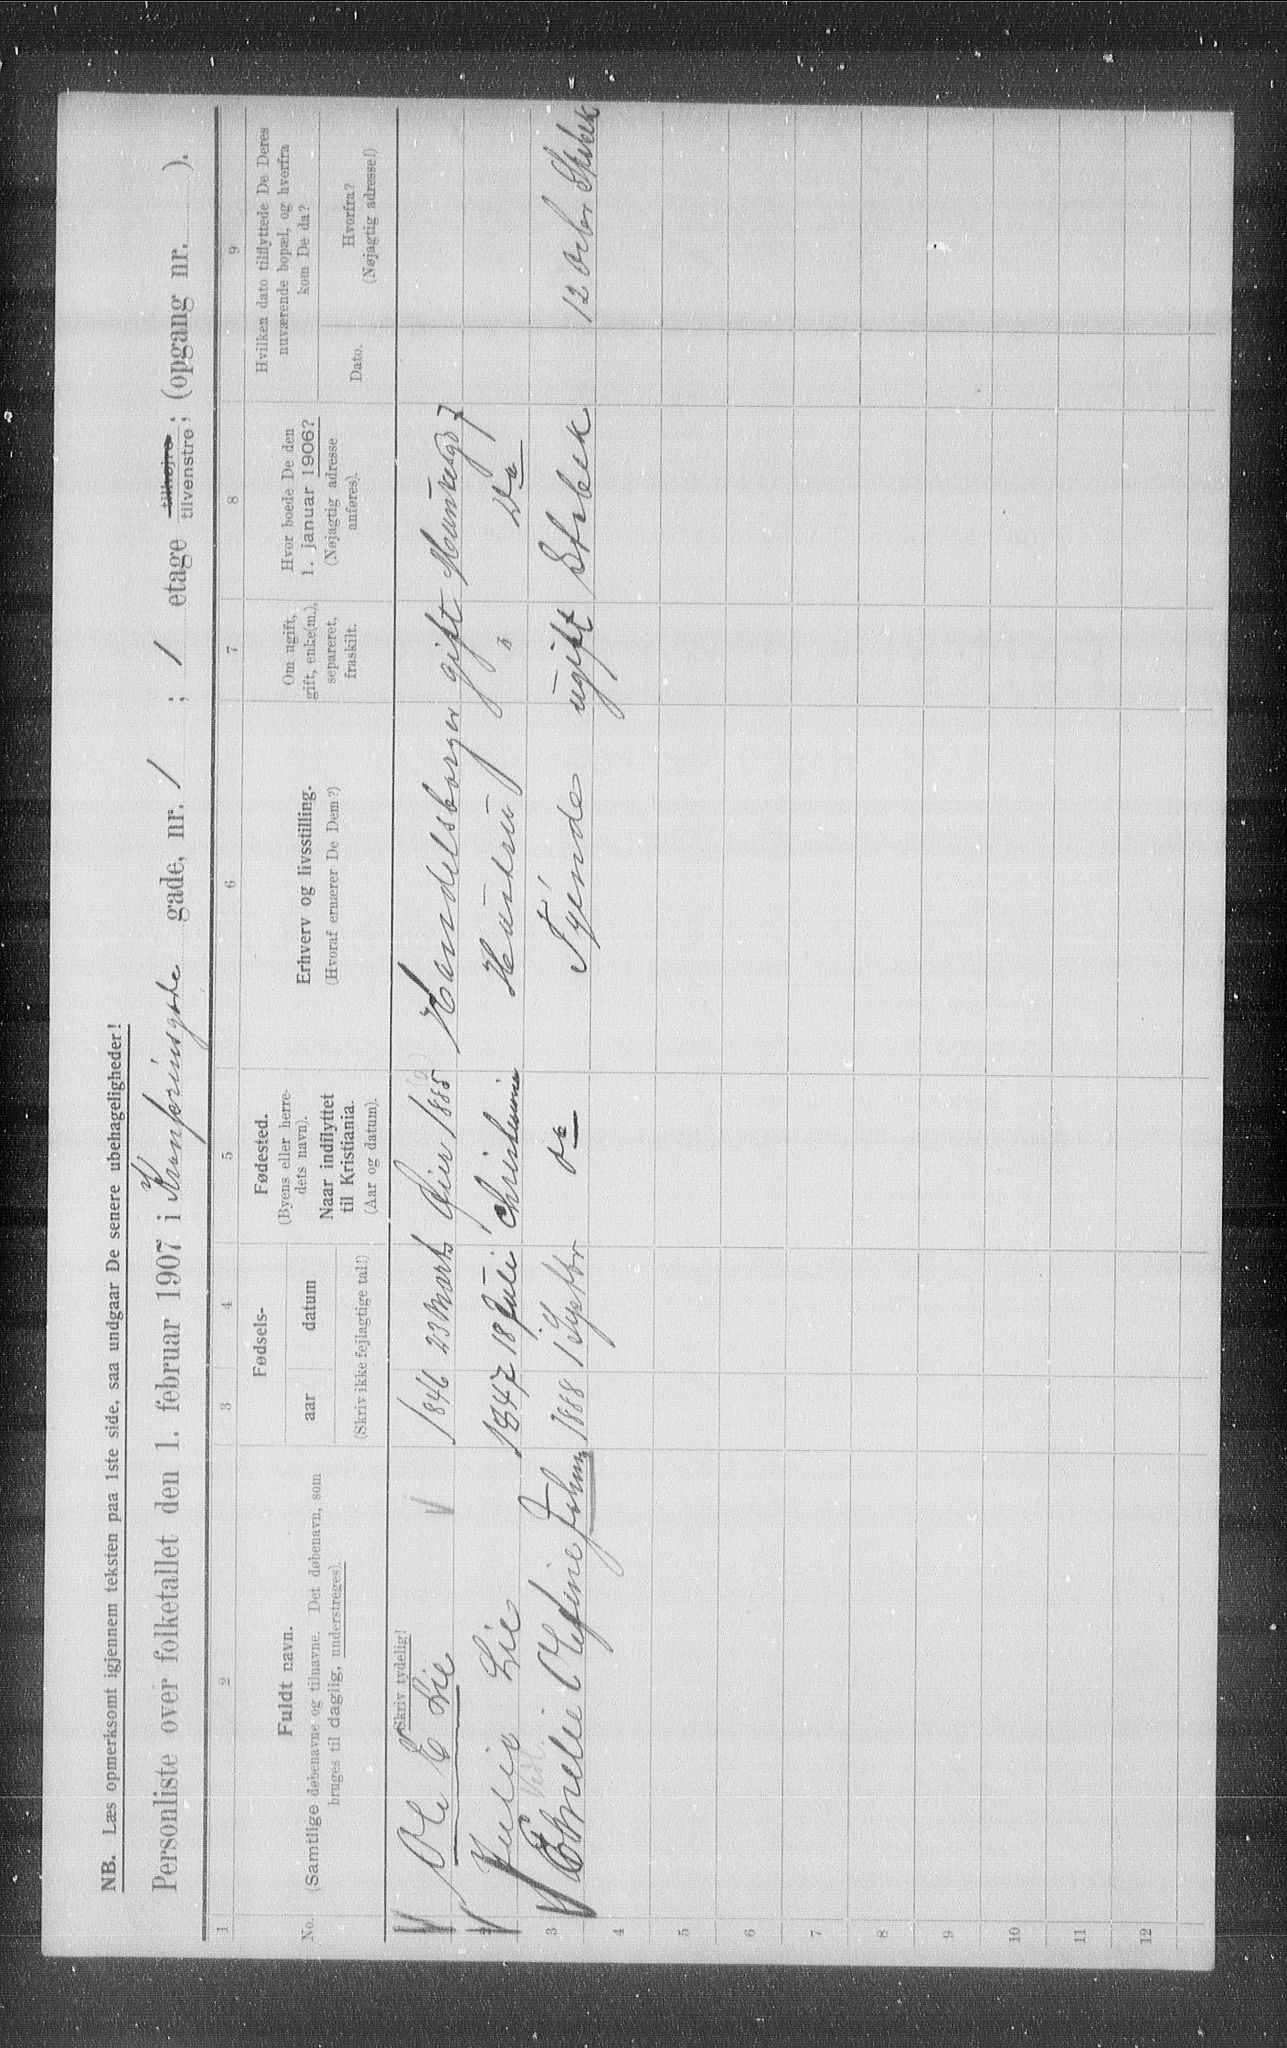 NB. Læs opmerksomt igjennem teksten paa 1ste side, saa undgaar De senere ubehageligheder!
Personliste over folketallet den 1. februar 1907 i Kronprinsgade gade, nr. 1 ; 1 etage tilhøjre tilvenstre; (opgang nr. ).
1 2 3 4 5 6 7 8 9
No.
Fuldt navn.
(Samtlige døbenavne og tilnavne. Det døbenavn, som
bruges til daglig, understreges).
Fødsels-
aar datum
(Skriv ikke fejlagtige tal!)
Fødested.
(Byens eller herre-
dets navn).
Naar indflyttet
til Kristiania.
(Aar og datum).
Erhverv og livsstilling.
(Hvoraf ernærer De Dem?)
Om ugift,
gift, enke(m.),
separeret,
fraskilt.
Hvor boede De den
1. januar 1906?
(Nøjagtig adresse
anføres).
Hvilken dato tilflyttede De Deres
nuværende bopæl, og hvorfra
kom De da?
Dato.
Hvorfra?
(Nøjagtig adresse!)
Skriv tydelig!
Ole E Lie 1846 23 Marts Øier 1885 Handelsborger gift Munkedg 7
2 Julie Lie 1847 18 Juli Christiania Hustru " Do
3 Olefine Johnsen 1888 1 Septbr do Tyende ugift Stabek 12 Octbr Stabek
4
5
6
7
8
9
10
11
12